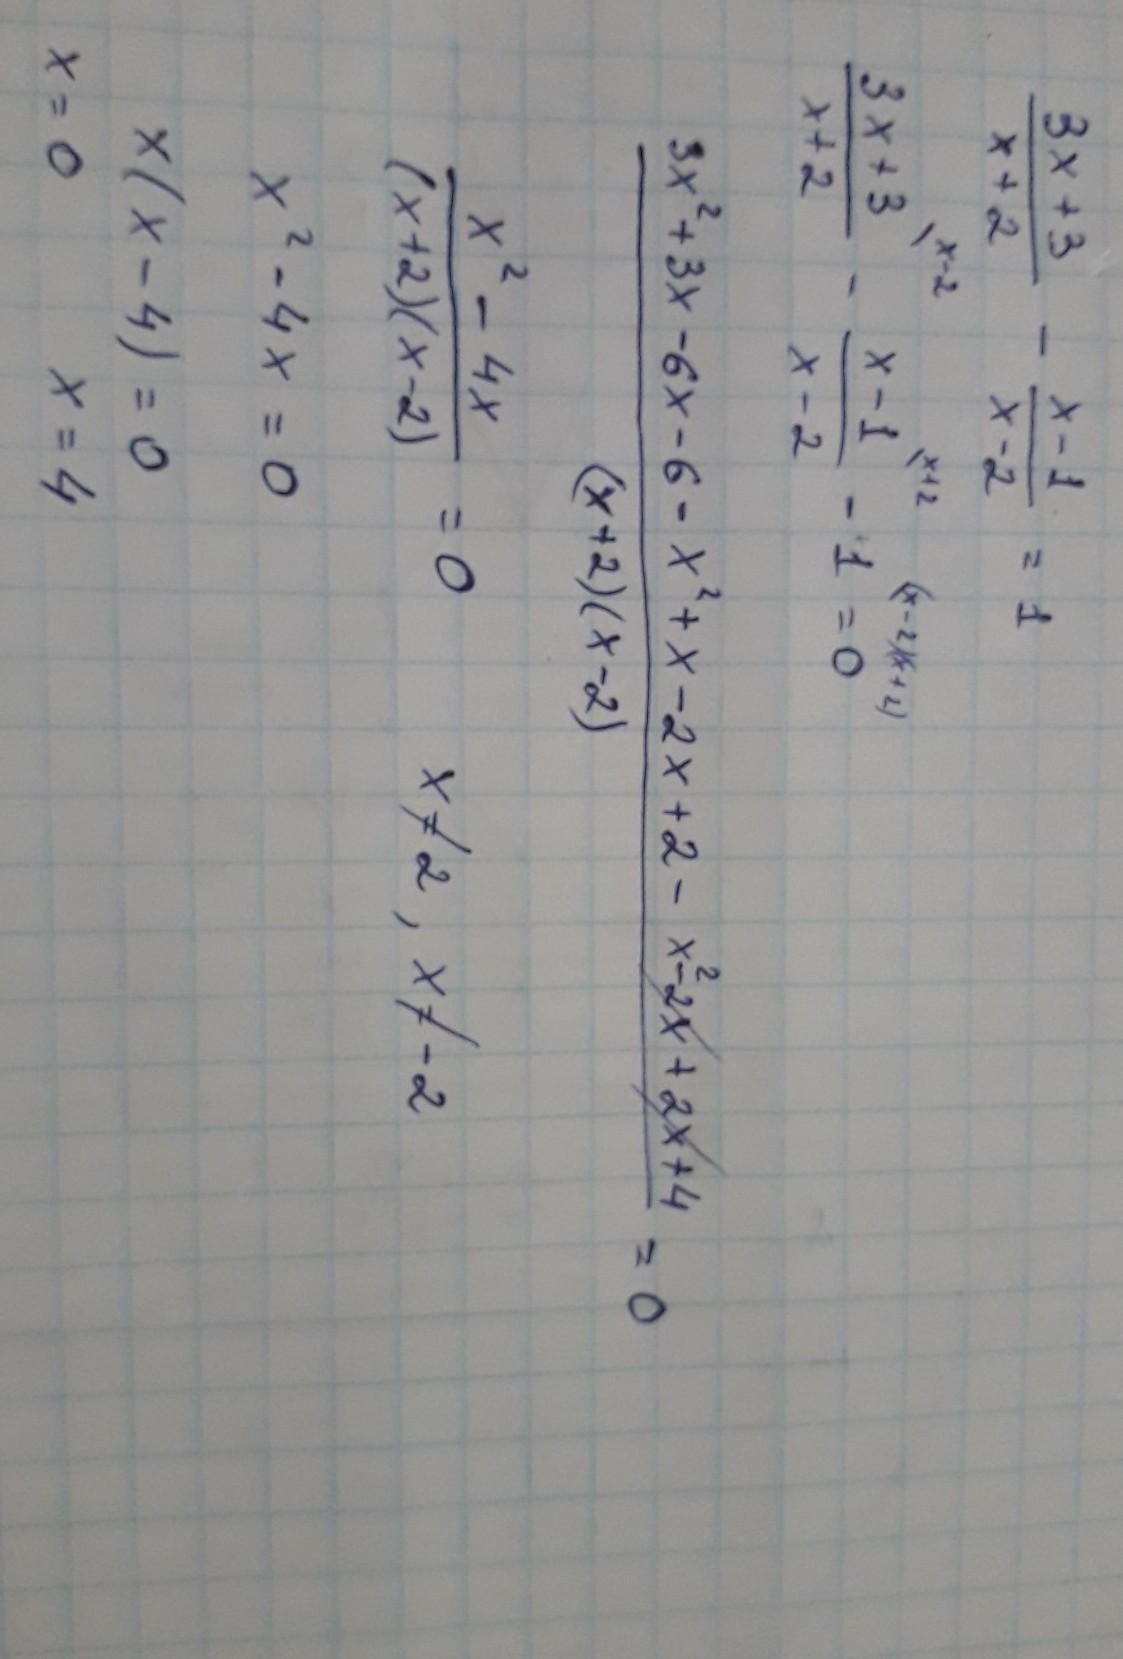 (3x+3)/(x+2) - (x-1)/(x-2) = 1
(3x+3)/(x+2) \x-2 - (x-1)/(x-2) \x+2 - 1 (x-2)(x+2) = 0
(3x²+3x-6x-6-x²+x-2x+2-x²-2x+2x+4)/((x+2)(x-2)) = 0
(x²-4x)/((x+2)(x-2)) = 0 x≠2, x≠-2
x²-4x=0
x(x-4)=0
x=0 x=4